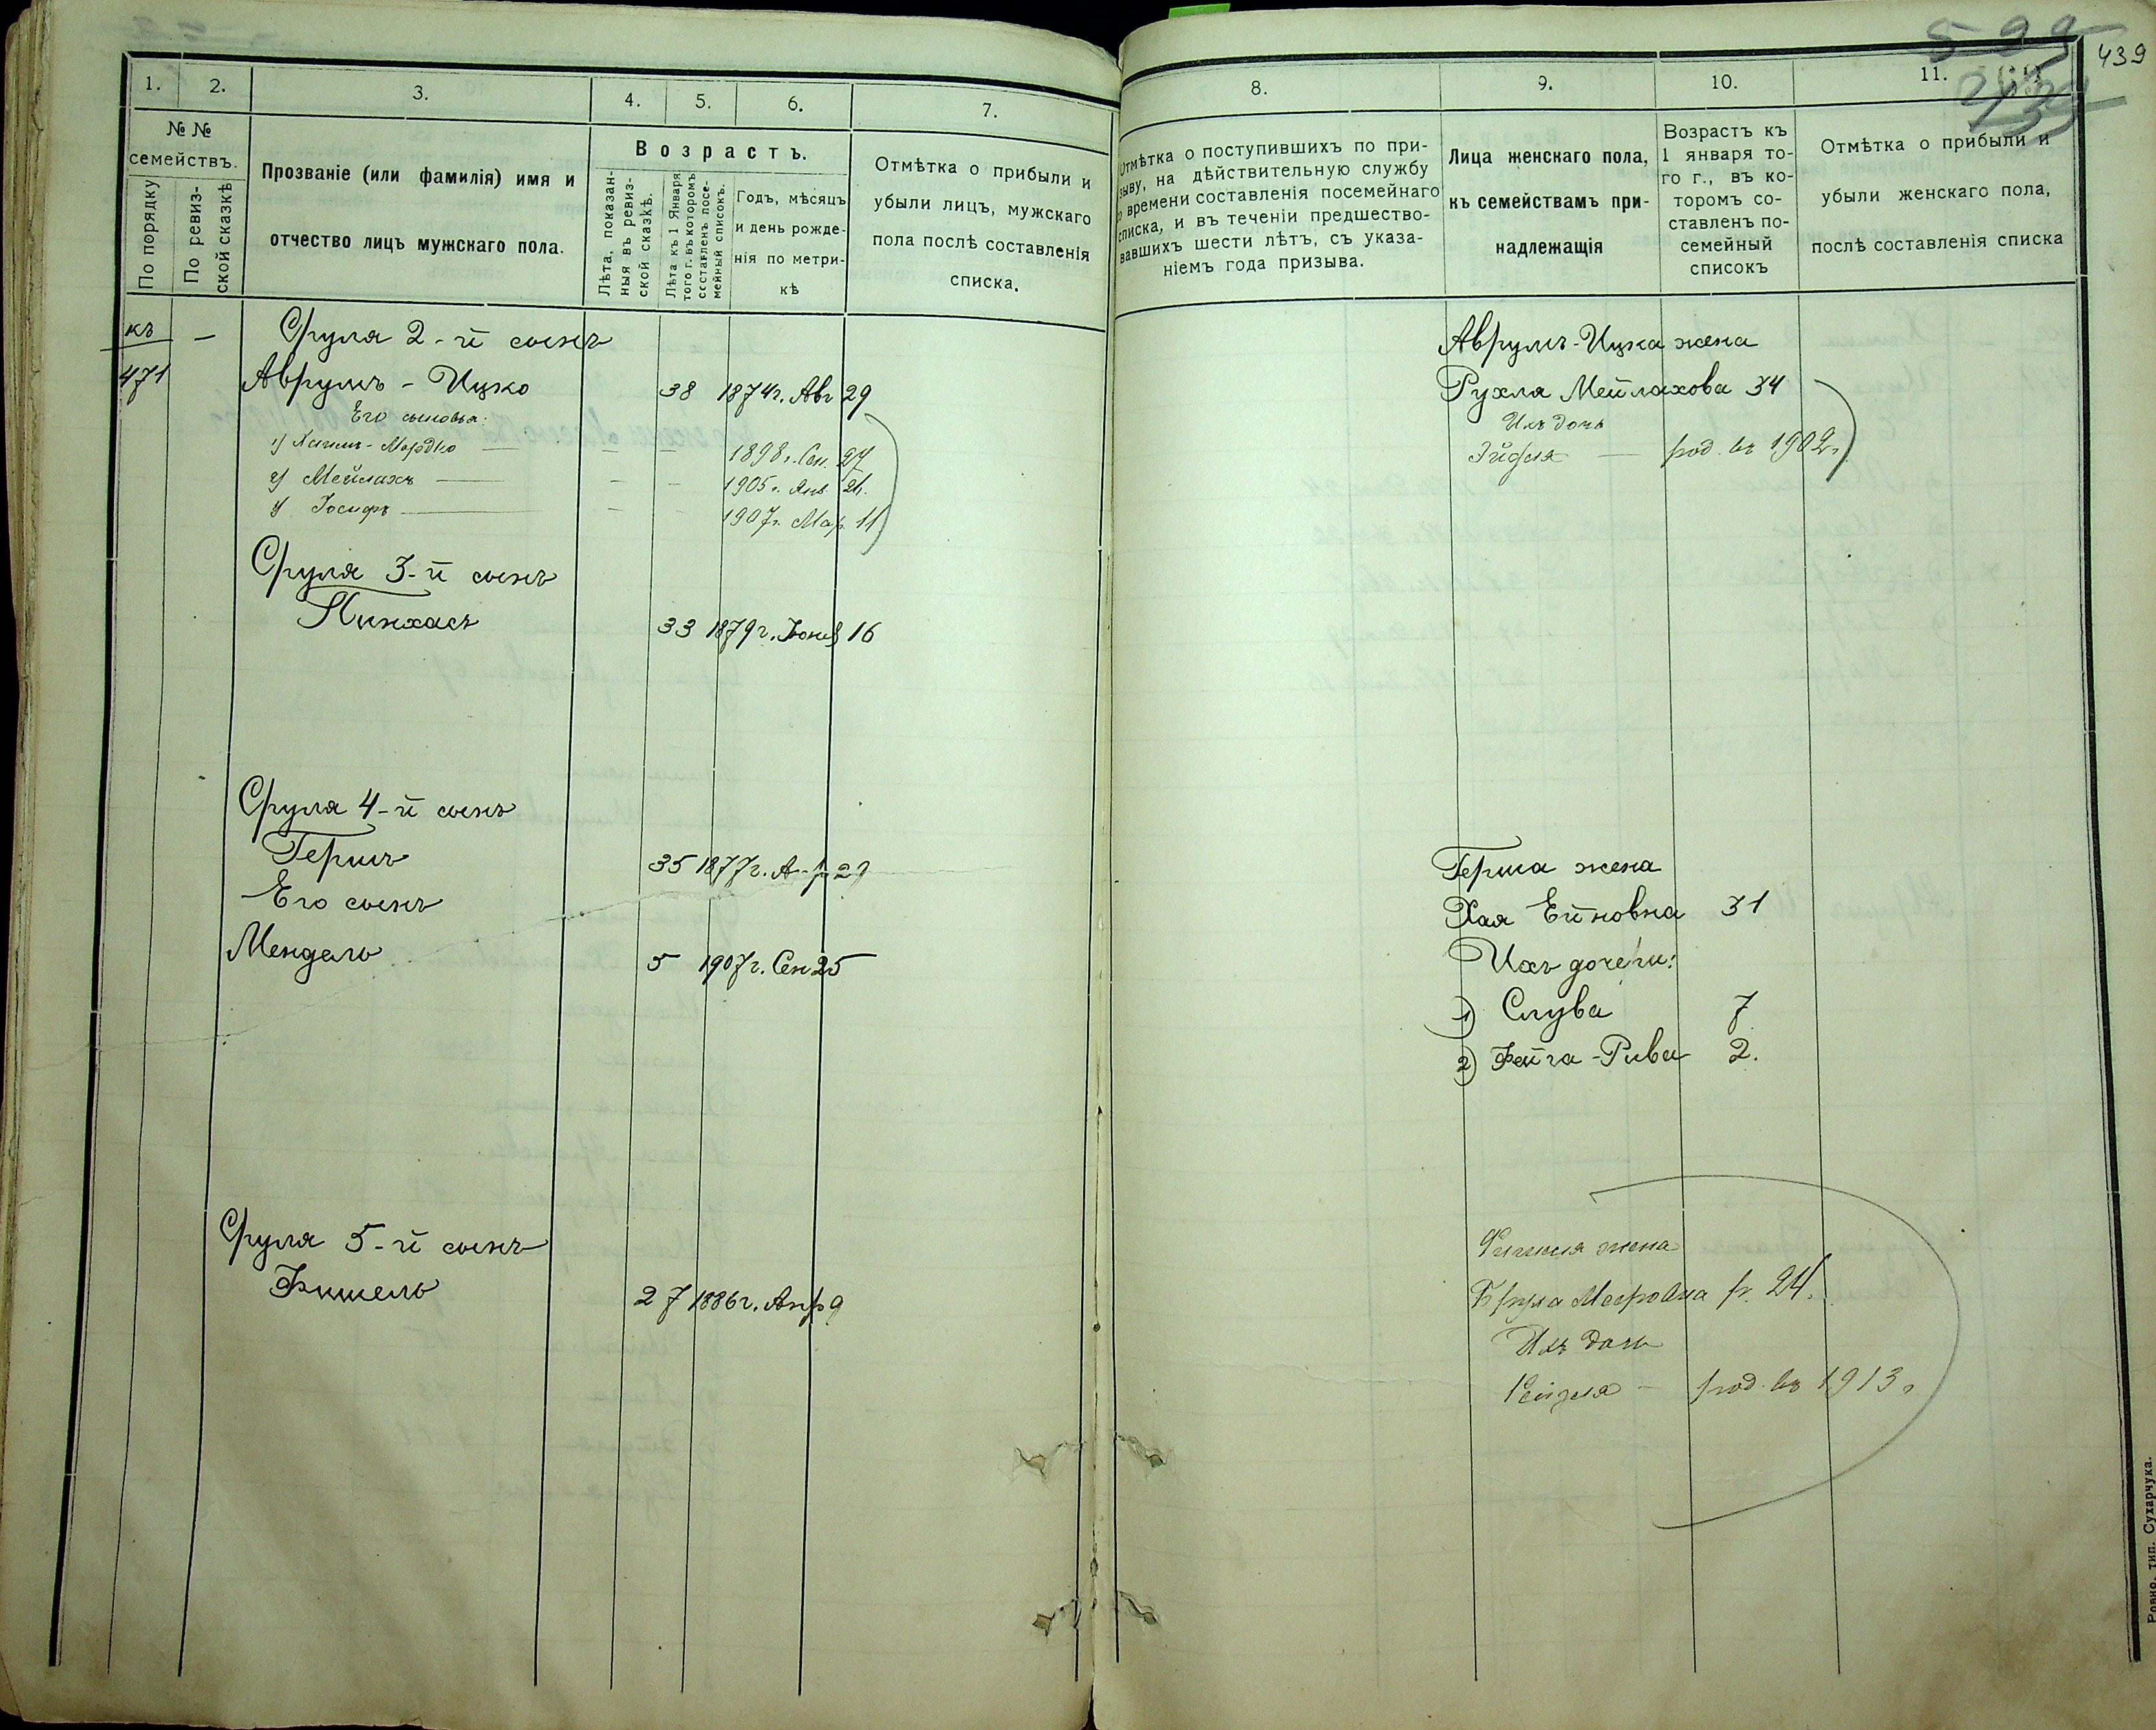 1.
2.
3.
4.
5.
6.
7.
№ №
семействъ.
По порядку
По ревиз-
ской сказкѣ
Прозваніе (или фамилія) имя и
отчество лицъ мужскаго пола.
Возрастъ.
Лѣта, показан-
ныя въ ревиз-
ской сказкѣ.
Лѣта къ 1 Января
того г. въ которомъ
составленъ посе-
мейный списокъ.
Годъ, мѣсяцъ
и день рожде-
нія по метри-
кѣ
Отмѣтка о прибыли и
убыли лицъ, мужскаго
пола послѣ составленія
списка.
къ — Сруля 2-й сынъ
471 Аврумъ-Ицко 38 1874г. Авг 29
Его сыновья:
1) Мордко — — — 1898г. Сен. 27
2) Мейлахъ — — — 1905г. Янв. 21.
3) Іосифъ — — — 1907г. Мар. 11
Сруля 3-й сынъ
Пинхасъ 33 1879г. Іюня 16
Сруля 4-й сынъ
Гершъ 35 1877г. Апр 29
Его сынъ
Мендель 5 1907г. Сен 25
Сруля 5-й сынъ
Фишель 27 1886г. Апр 9
439
599
8.
9.
10.
11.
Отмѣтка о поступившихъ по при-
зыву, на дѣйствительную службу
о времени составленія посемейнаго
списка, и въ теченіи предшество-
вавшихъ шести лѣтъ, съ указа-
ніемъ года призыва.
Лица женскаго пола,
къ семействамъ при-
надлежащія
Возрастъ къ
1 января то-
го г., въ ко-
торомъ со-
ставленъ по-
семейный
списокъ
Отмѣтка о прибыли и
убыли женскаго пола,
послѣ составленія списка
Аврумъ-Ицка жена
Рухля Мейлахова 34
Ихъ дочь
— род. въ 1902г.
Герша жена
Хая Ейновна 31
Ихъ дочери:
1) Слува 7
2) Фейга-Рива 2.
Фишеля жена
Бруха Мееровна р. 24.
Ихъ дочь
Рейзля — род. въ 1913г.
Ровно, тип. Сухарчука.